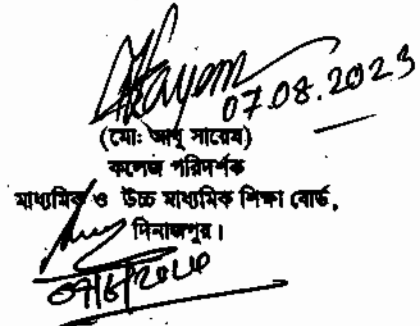 07.08.2023
(মোঃ আবু সায়েম)
কলেজ পরিদর্শক
মাধ্যমিক ও উচ্চ মাধ্যমিক শিক্ষা বোর্ড,
দিনাজপুর।